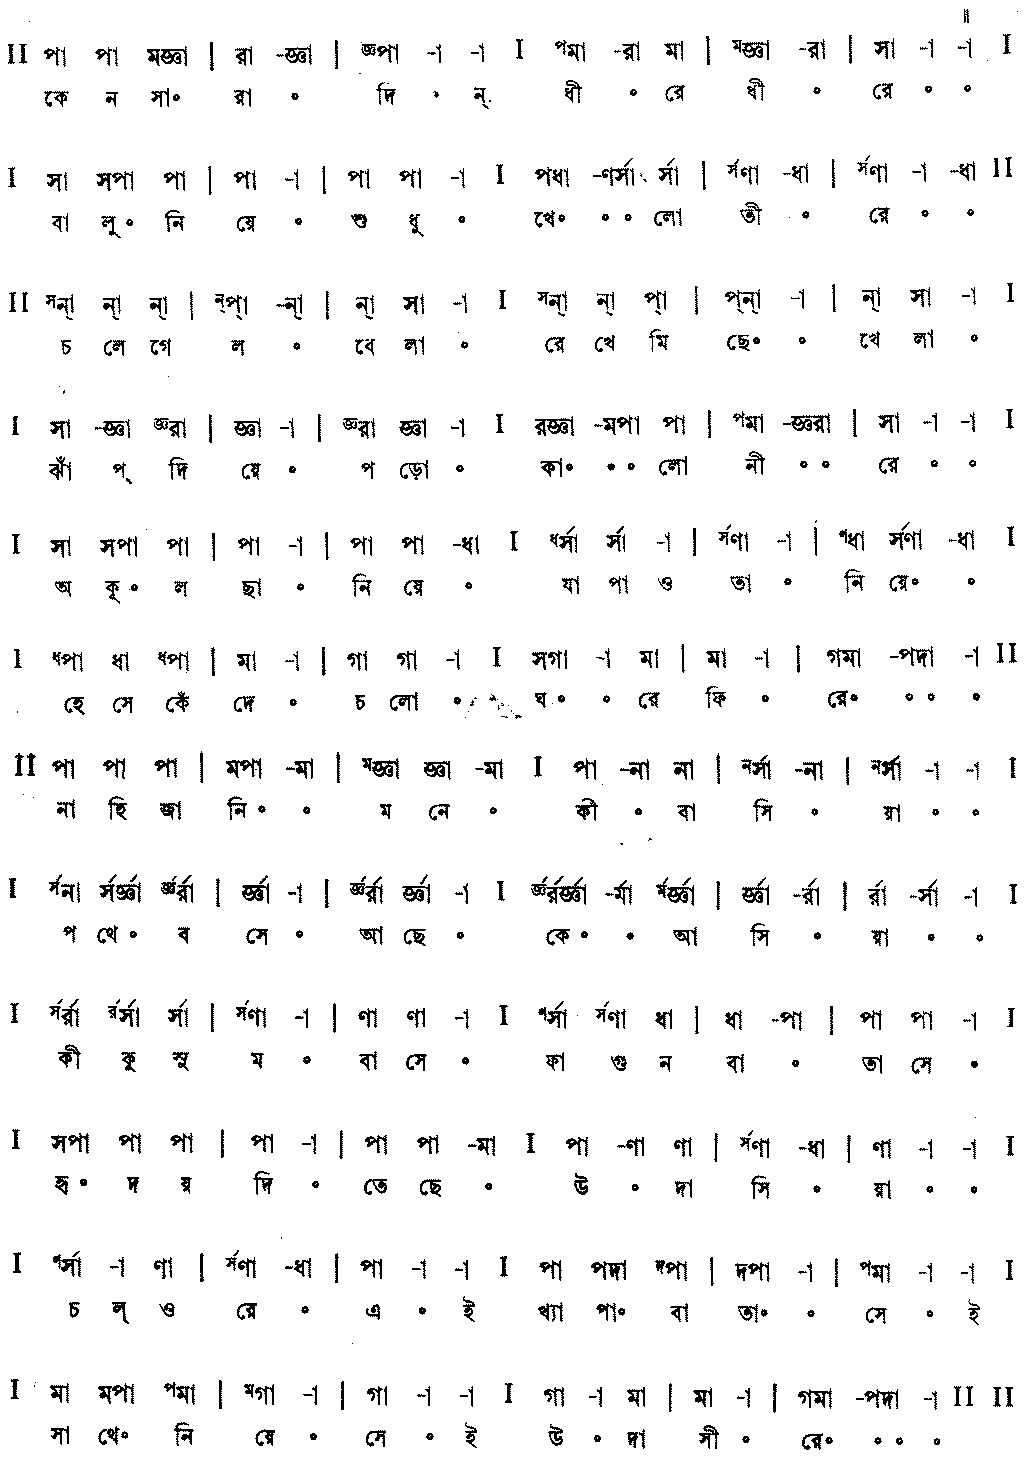 II পা পা মজ্ঞা | রা -জ্ঞা | জ্ঞপা -া -া I পমা -রা মা | মজ্ঞা -রা | সা -া -া I
কে ন সা॰ রা ॰ দি ॰ ন্ ধী ॰ রে ধী ॰ রে ॰ ॰
I সা সপা পা | পা -া | পা পা -া I পধা -ণর্সা র্সা | র্সণা -ধা | র্সণা -া -ধা II
বা লু॰ নি য়ে ॰ শু ধু ॰ খে॰ ॰॰ লো তী ॰ রে ॰ ॰
II সন্া ন্া ন্া | ন্প্া -ন্া | ন্া সা -া I সন্া ন্া প্া | প্ন্া -া | ন্া সা -া I
চ লে গে ল ॰ বে লা ॰ রে খে মি ছে॰ ॰ খে লা ॰
I সা -জ্ঞা জ্ঞরা | জ্ঞা -া | জ্ঞরা জ্ঞা -া I রজ্ঞা -মপা পা | পমা -জ্ঞরা | সা -া -া I
ঝাঁ প্ দি য়ে ॰ প ড়ো ॰ কা॰ ॰॰ লো নী ॰॰ রে ॰ ॰
I সা সপা পা | পা -া | পা পা -ধা I ধর্সা র্সা -া | র্সণা -া | ণধা র্সণা -ধা I
অ কূ॰ ল ছা ॰ নি য়ে ॰ যা পা ও তা ॰ নি য়ে॰ ॰
I ধপা ধা ধপা | মা -া | গা গা -া I সগা -া মা | মা -া | গমা -পদা -া II
হে সে কেঁ দে ॰ চ লো ॰ ঘ॰ ॰ রে ফি ॰ রে॰ ॰॰ ॰
II পা পা পা | মপা -মা | মজ্ঞা জ্ঞা -মা I পা -না না | নর্সা -না | নর্সা -া -া I
না হি জা নি॰ ॰ ম নে ॰ কী ॰ বা সি ॰ য়া ॰ ॰
I র্সনা র্সর্জ্ঞা র্জ্ঞর্রা | র্জ্ঞা -া | র্জ্ঞর্রা র্জ্ঞা -া I র্জ্ঞর্রর্জ্ঞা -র্মা র্মর্জ্ঞা | র্জ্ঞা -র্রা | র্রা -র্সা -া I
প থে॰ ব সে ॰ আ ছে ॰ কে॰ ॰ আ সি ॰ য়া ॰ ॰
I র্সর্রা র্রর্সা র্সা | র্সণা -া | ণা ণা -া I ণর্সা র্সণা ধা | ধা -পা | পা পা -া I
কী কু সু ম ॰ বা সে ॰ ফা গু ন বা ॰ তা সে ॰
I সপা পা পা | পা -া | পা পা -মা I পা -ণা ণা | র্সণা -ধা | ণা -া -া I
হৃ॰ দ য় দি ॰ তে ছে ॰ উ ॰ দা সি ॰ য়া ॰ ॰
I ণর্সা -া ণা | র্সণা -ধা | পা -া -া I পা পদা দপা | দপা -া | পমা -া -া I
চ ল্ ও রে ॰ এ ॰ ই খ্যা পা॰ বা তা॰ ॰ সে ॰ ই
I মা মপা পমা | মগা -া | গা -া -া I গা -া মা | মা -া | গমা -পদা -া II II
সা থে॰ নি য়ে ॰ সে ॰ ই উ ॰ দা সী ॰ রে॰ ॰॰ ॰